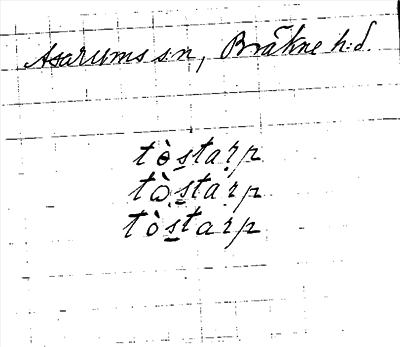 Asarums sn, Bräkne h:d.
tò̱starp
tò̱starp
tò̱starp